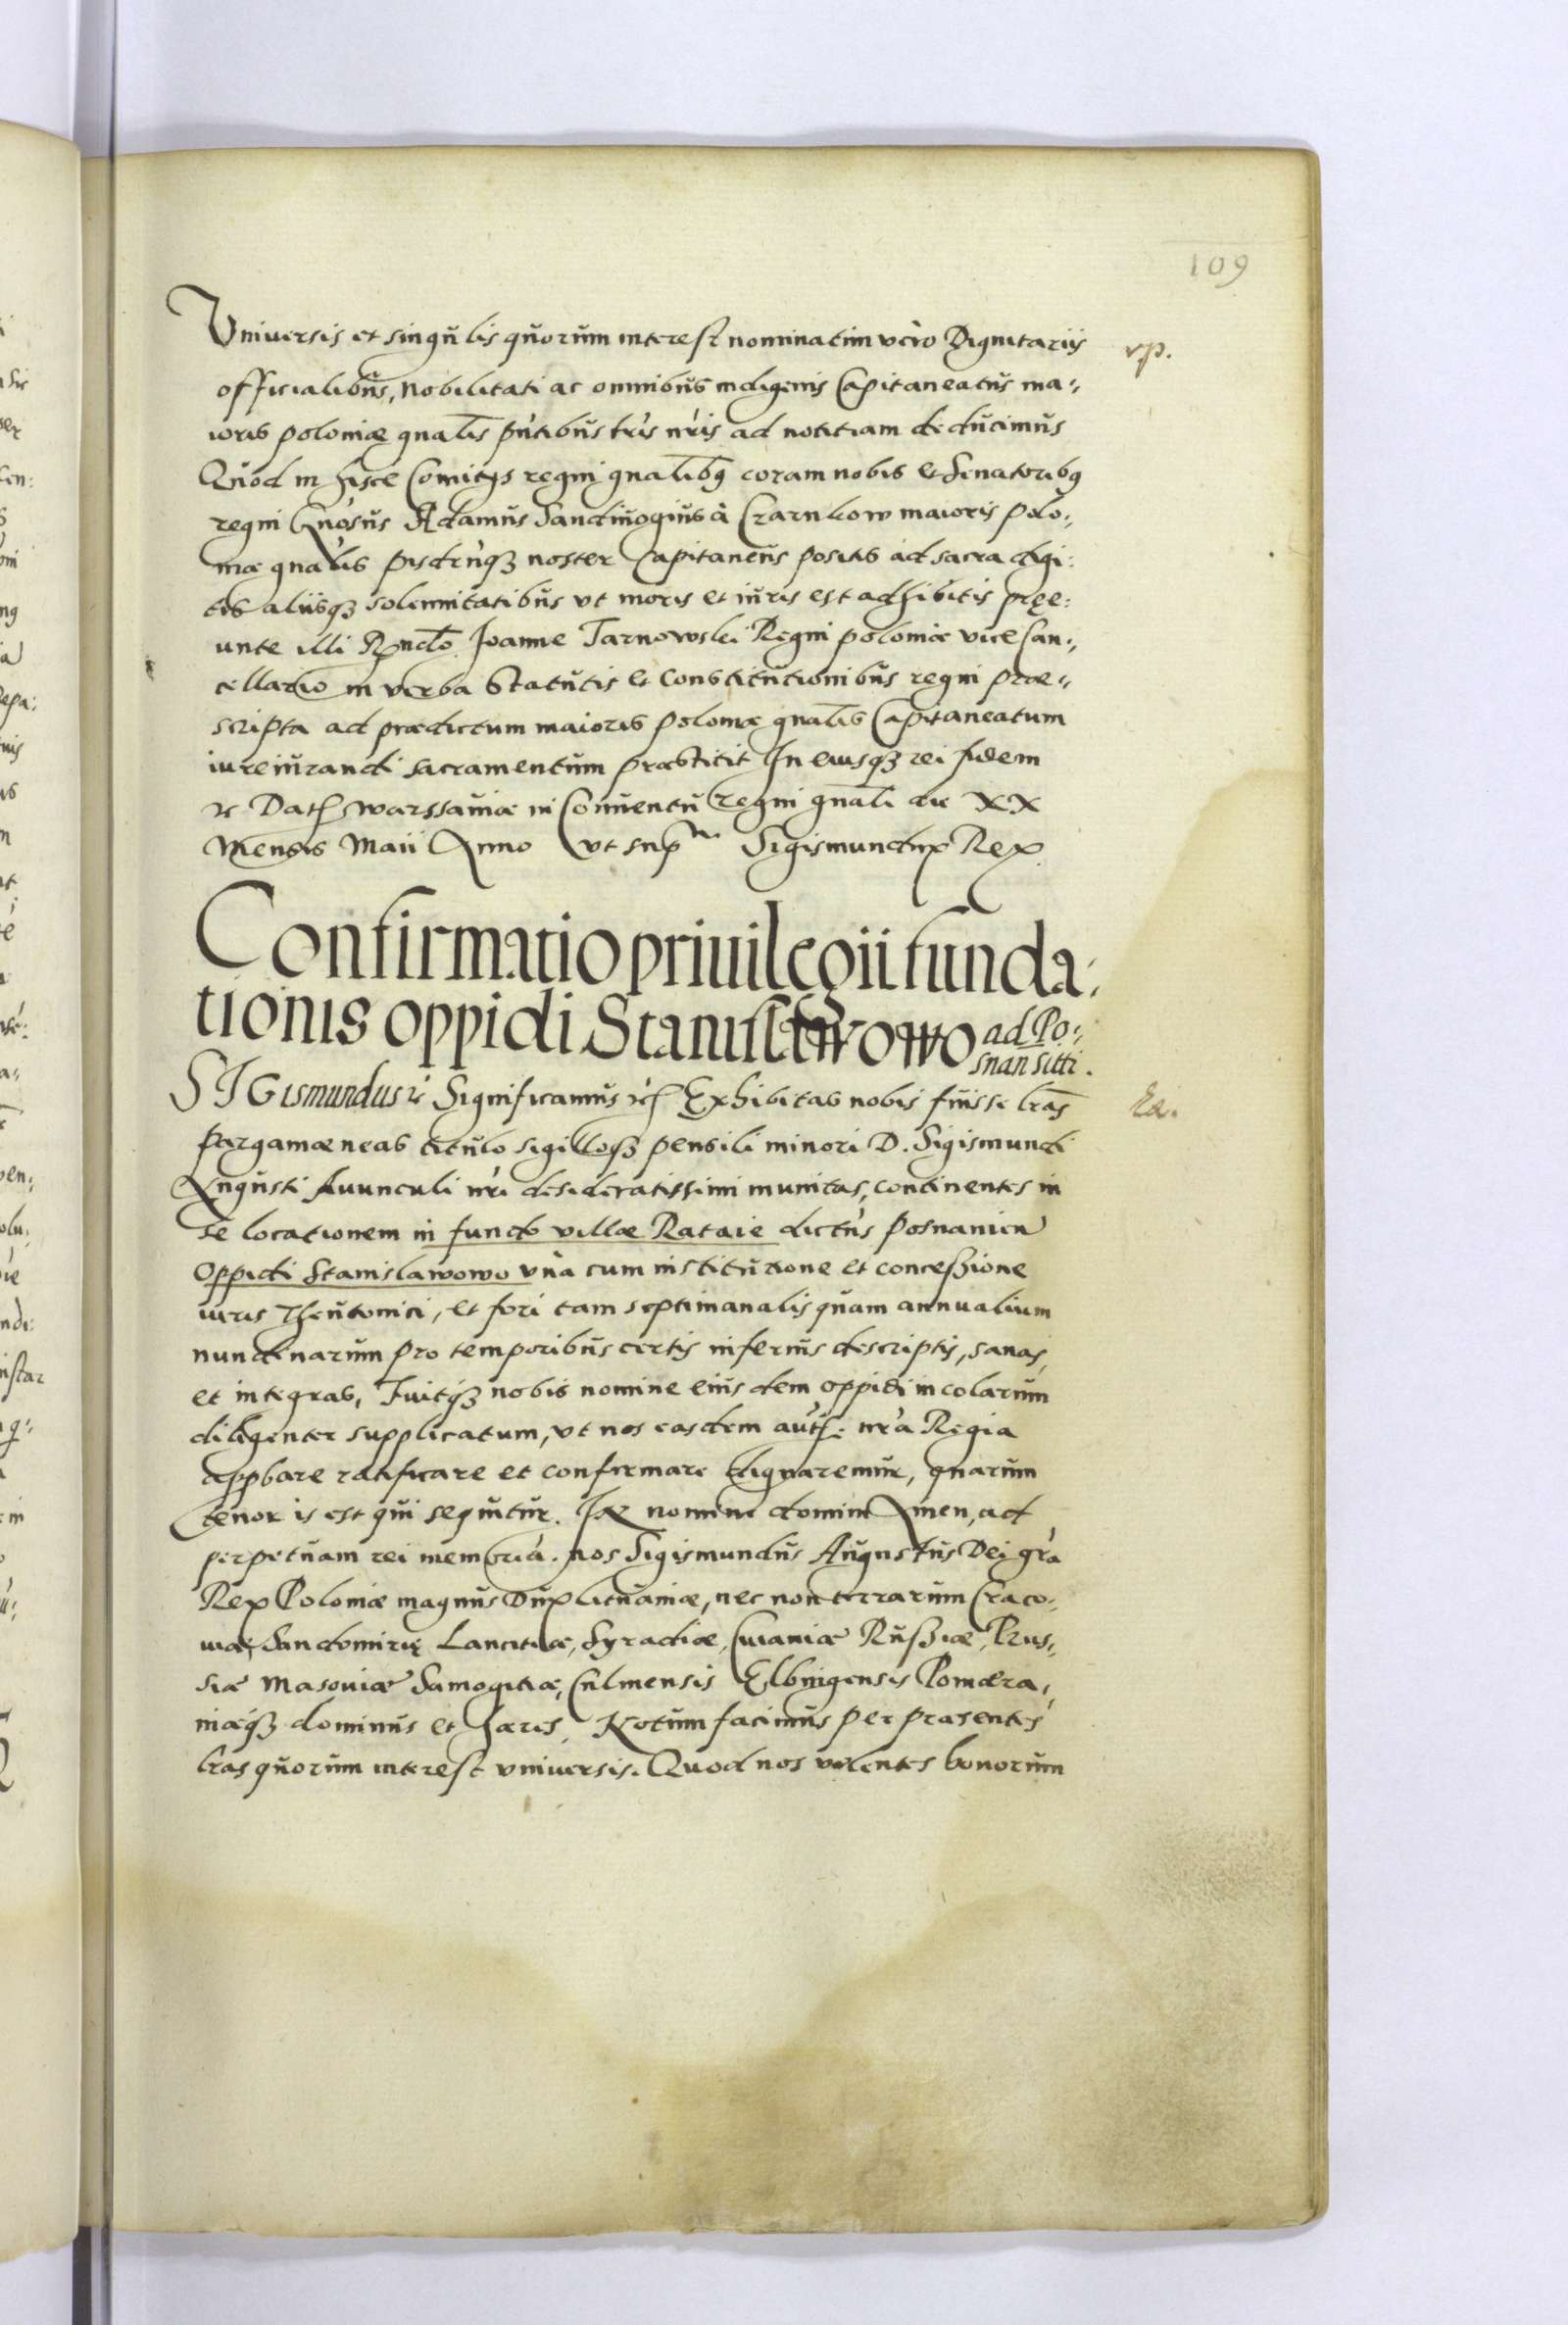 109
Universis et singulis quorum interest nominatim vero Dignitariis
vp.
officialibus, nobilitati ac omnibus indigenis Capitaneatus ma:
ioris poloniæ gnalis pntibus lris nris ad notitiam deducimus
Quod in hisce Comitijs regni gnalibq coram nobis et Senatoribq
regni Gnosus Adamus Sandiuogius à Czarnkow maioris polo:
niæ gnalis noster Capitaneus positis ad sacra digi:
tis aliisqz solennitatibus vt moris et iuris est adhibitis pręe:
unte illi Rndo Joanne Tarnowski Regni poloniæ vice Can:
cellario in verba Statutis et Constitutionibus regni præ:
scripta ad prædictum maioris poloniæ gnalis Capitaneatum
iureiurandi sacramentum præstitit In eiusqz rei fidem
Dat Warssauiæ in Conuentu regni gnali die XX
Mensis Maii Anno vt sup Sigismundus Rex
Confirmatio priuilegii funda:
tionis oppidi Stanislawowo ad Po:
snan sitti.
SIGismundus Significamus Exhibitas nobis fuisse lras
Ea.
pargamæneas titulo sigilloqz pensili minori D. Sigismundi
Augusti Auunculi nri desideratissimi munitas, continentes in
se locationem in fundo villæ Rataie dictus posnanien
Oppidi Stanislawowo vnà cum institutione et concessione
iuris Theutonici, et fori tam septimanalis quam annualium
nundinarum pro temporibus certis inferius descriptis, sanas,
et integras, Fuitqz nobis nomine eiusdem oppidi incolarum
diligenter supplicatum, vt nos easdem authe nra Regia
appbare ratificare et confirmare dignaremur, quarum
tenor is est qui sequitur. In nomine domini Amen, ad
perpetuam rei memoria. nos Sigismundus Augustus Dei gra
Rex Poloniæ magnus Dux Lituaniæ, nec non terrarum Craco:
uiæ, Sandomirię Lancitiæ, Syradiæ, Cuiauiæ Russiæ, Prus:
siæ Masouiæ Samogitiæ, Culmensis Elbingensis Pomæra:
niæqz dominus et hæres. Notum facimus per præsentes
lras quorum interest vniuersis. Quod nos volentes bonorum